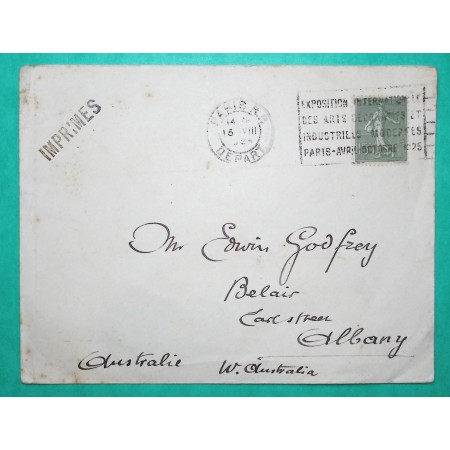 IMPRIMES
PARIS R.P.
16 VIII
DEPART
EXPOSITION INTERNATIONALE
DES ARTS DECORATIFS ET
INDUSTRIELS MODERNES
PARIS-AVRIL OCTOBRE 1925
Mr Edwin Godfrey
Belair
Earl street
Albany
Australie W. Australia